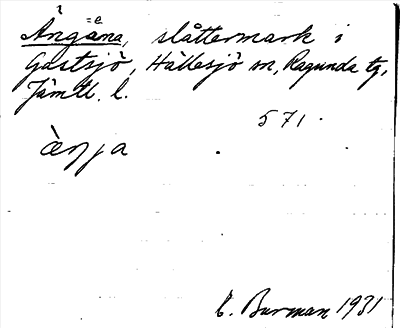 Ängåna, slåttermark i
Gastsjö, Hällesjö sn, Ragunda tg,
Jämtl. l.
571.
àŋŋa
C. Burman 1931